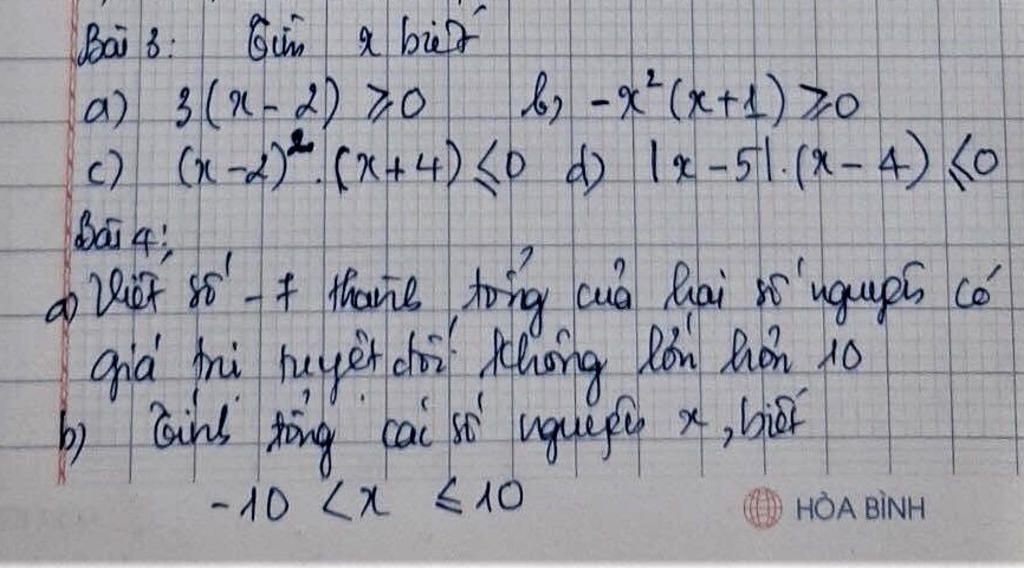 Bài 3: Tìm x biết
a) 3(x - 2) ≥ 0 b) -x²(x+1) ≥ 0
c) (x-2)².(x+4) ≤ 0 d) |x-5|.(x-4) ≤ 0
Bài 4:
a) Viết số -7 thành tổng của hai số nguyên có
giá trị tuyệt đối không lớn hơn 10
b) Tính tổng các số nguyên x, biết
-10 < x ≤ 10
HÒA BÌNH